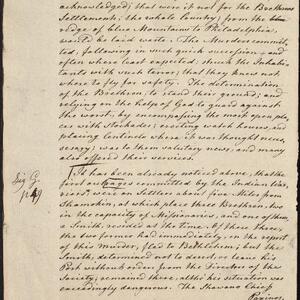 acknowledged; that were it not for the Brethrens
Settlements; the whole Country; from the blue
ridge of blue Mountains to Philadelphia,
would be laid waste. The Murders commit-
ted, following in such quick succession, and
often where least expected; struck the Inhabi-
tants with such terror; that they knew not
where to fly for safety. The determination
of the Brethren; to stand their ground; and
relying on the help of God to guard against
the worst; by encompassing the most open pla-
ces with Stockades; erecting watch houses, and
placing Centinels where it was thought neces-
sary; was to them salutary news; and many
also offered their services.
It has been already noticed above, that the
first outrages committed by the Indian War,
were on Settlers about five Miles from
Shamokin, at which place three Brethren, two
in the capacity of Missionaries, and one of them
a Smith, resided at the time. Of these three,
the two former had immediately, on the report
of this Murder, fled to Bethlehem; but the
Smith, determined not to desert, or leave his
Post without orders from the Directors of the
Society, remained there, altho' his situation was
exceedingly dangerous. The Shawano Chief
Paxinos,